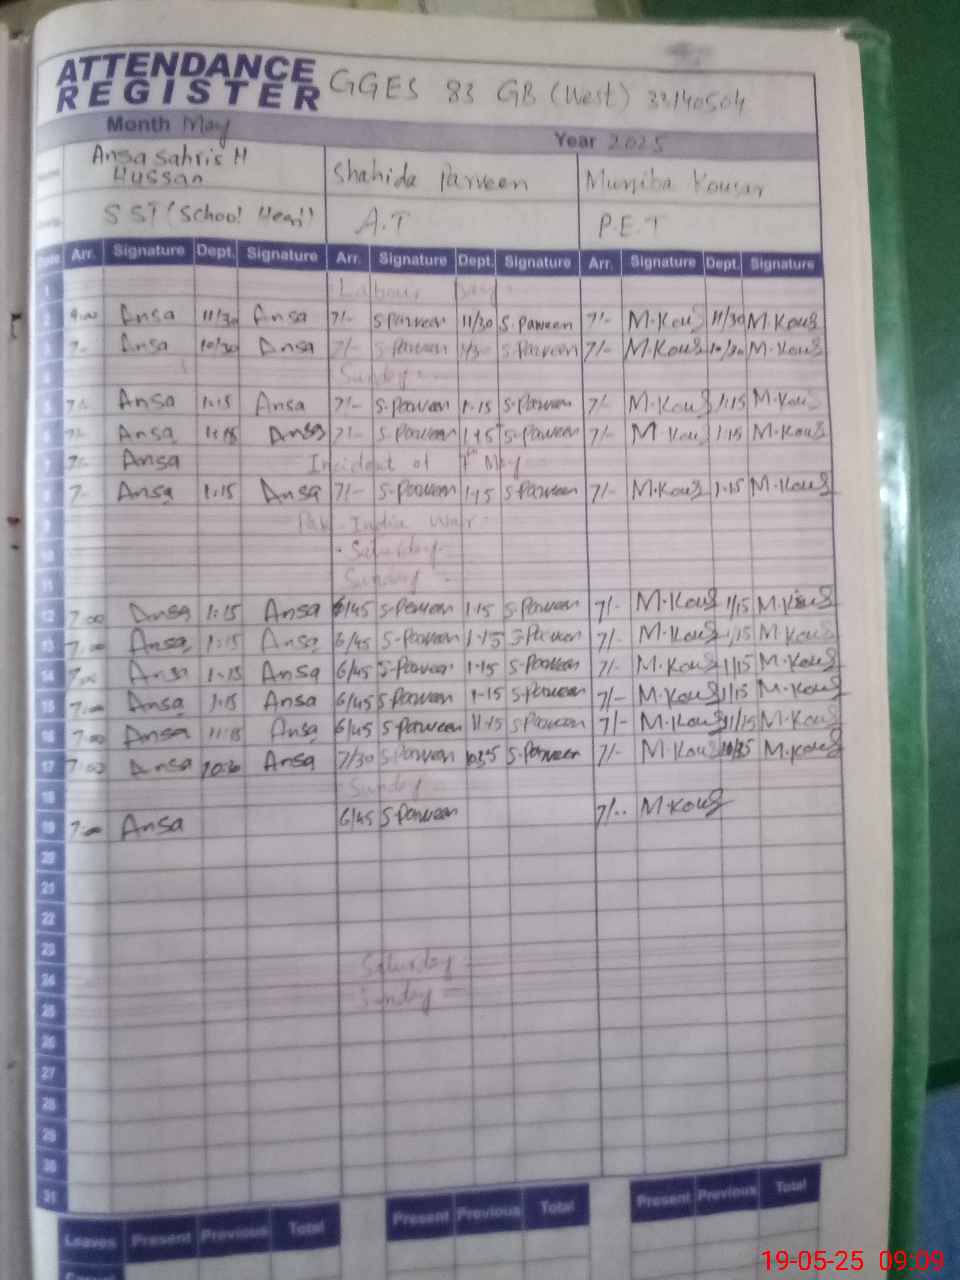 ATTENDANCE REGISTER GGES 83 GB (West) 33140504
Month May Year 2025
Ansa Sahris H Hussan Shahida Parveen Muniba Kousar
SST (School Head) A.T P.E.T
Date Arr. Signature Dept. Signature Arr. Signature Dept. Signature Arr. Signature Dept. Signature
1 Labour Day
2 Ansa 11/30 Ansa 7/- S Parveen 11/30 S. Parveen 7/- M.Kous 11/30 M.Kous
3 7- Ansa 10/30 Ansa 7/- S Parveen S. Parveen 7/- M.Kous 10/30 M.Kous
4 Sunday
5 7/- Ansa 1.15 Ansa 7/- S.Parveen 1.15 S.Parveen 7/- M.Kous 1.15 M.Kous
6 7/- Ansa 1.15 Ansa 7/- S.Parveen 1.15 S.Parveen 7/- M Kous 1.15 M.Kous
7 7/- Ansa Incident of 7th May
8 7- Ansa 1.15 Ansa 7/- S.Parveen 1.15 S Parveen 7/- M.Kous 1.15 M.Kous
9 Pak-India War
10 Saturday
11 Sunday
12 7:00 Ansa 1:15 Ansa 6/45 S.Parveen 1.15 S.Parveen 7/- M.Kous 1/15 M.Kous
13 7:00 Ansa 1:15 Ansa 6/45 S.Parveen 1.15 S.Parveen 7/- M.Kous 1/15 M.Kous
14 7:00 Ansa 1.15 Ansa 6/45 S.Parveen 1.15 S.Parveen 7/- M.Kous 1/15 M.Kous
15 7:00 Ansa 1.15 Ansa 6/45 S Parveen 1.15 S.Parveen 7/- M.Kous 1/15 M.Kous
16 7:00 Ansa Ansa 6/45 S.Parveen S Parveen 7/- M.Kous M.Kous
17 7:00 Ansa Ansa 7/30 S Parveen 10:35 S.Parveen 7/- M.Kous 10/35 M.Kous
18 Sunday
19 7:00 Ansa 6/45 S.Parveen 7/.. M.Kous
20
21
22
23
24 Saturday
25 Sunday
26
27
28
29
30
31
Leaves Present Previous Total Present Previous Total Present Previous Total
Casual
19-05-25 09:09